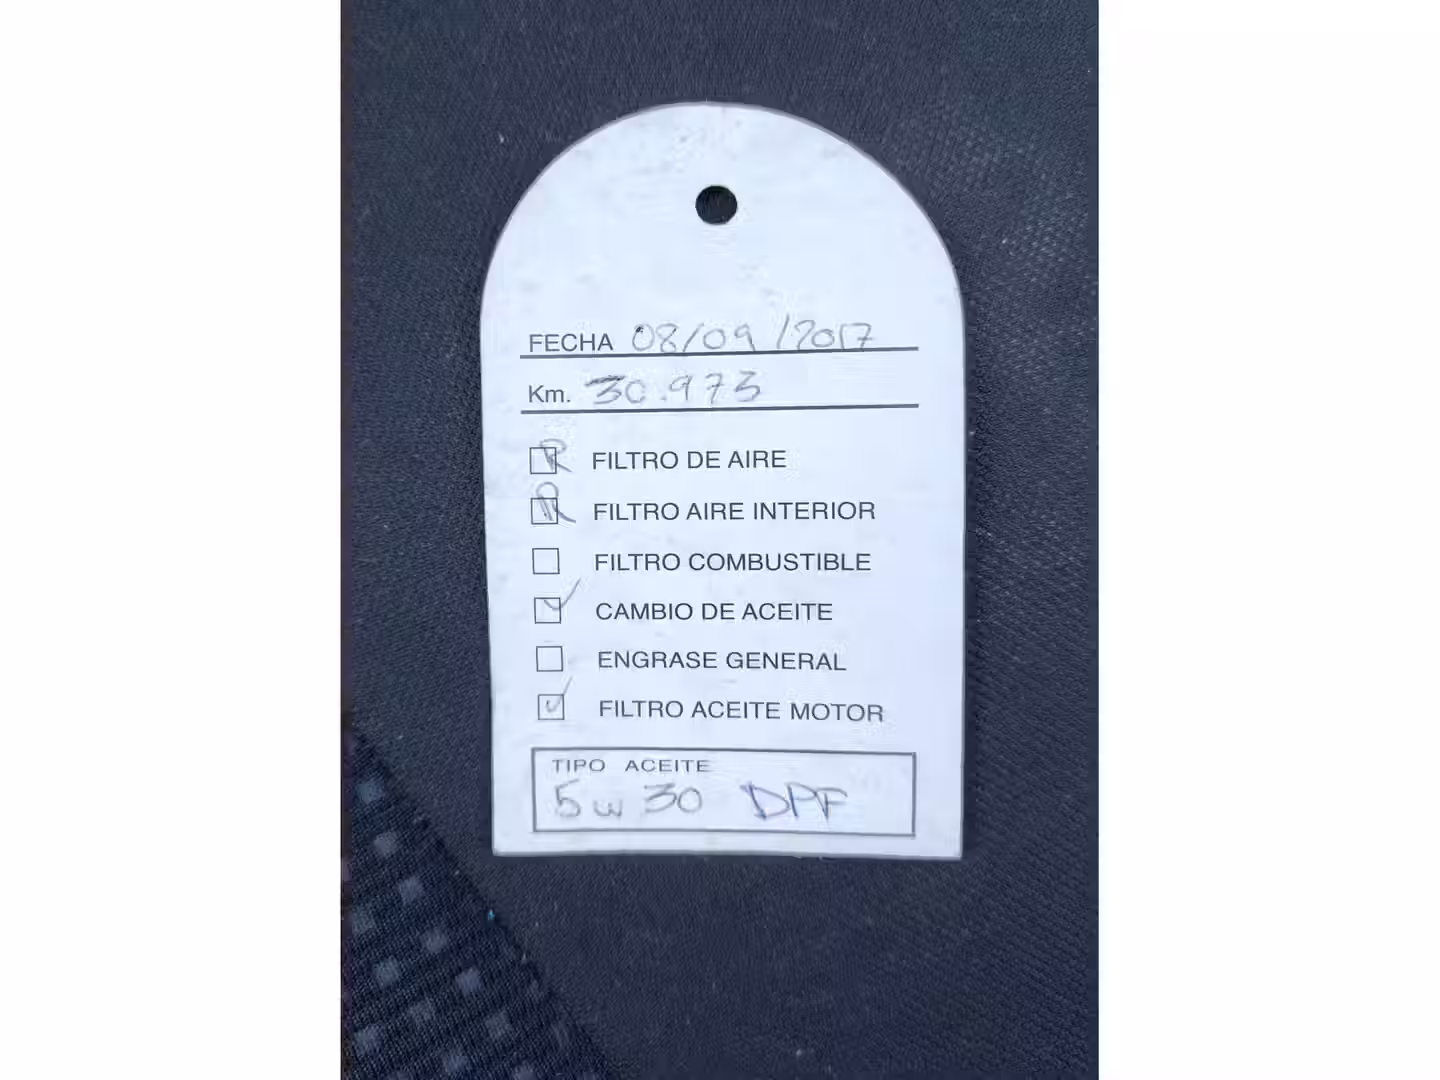 FECHA 08/09/2017
Km. 30.973
R FILTRO DE AIRE
R FILTRO AIRE INTERIOR
FILTRO COMBUSTIBLE
✓ CAMBIO DE ACEITE
ENGRASE GENERAL
✓ FILTRO ACEITE MOTOR
TIPO ACEITE
5w30 DPF